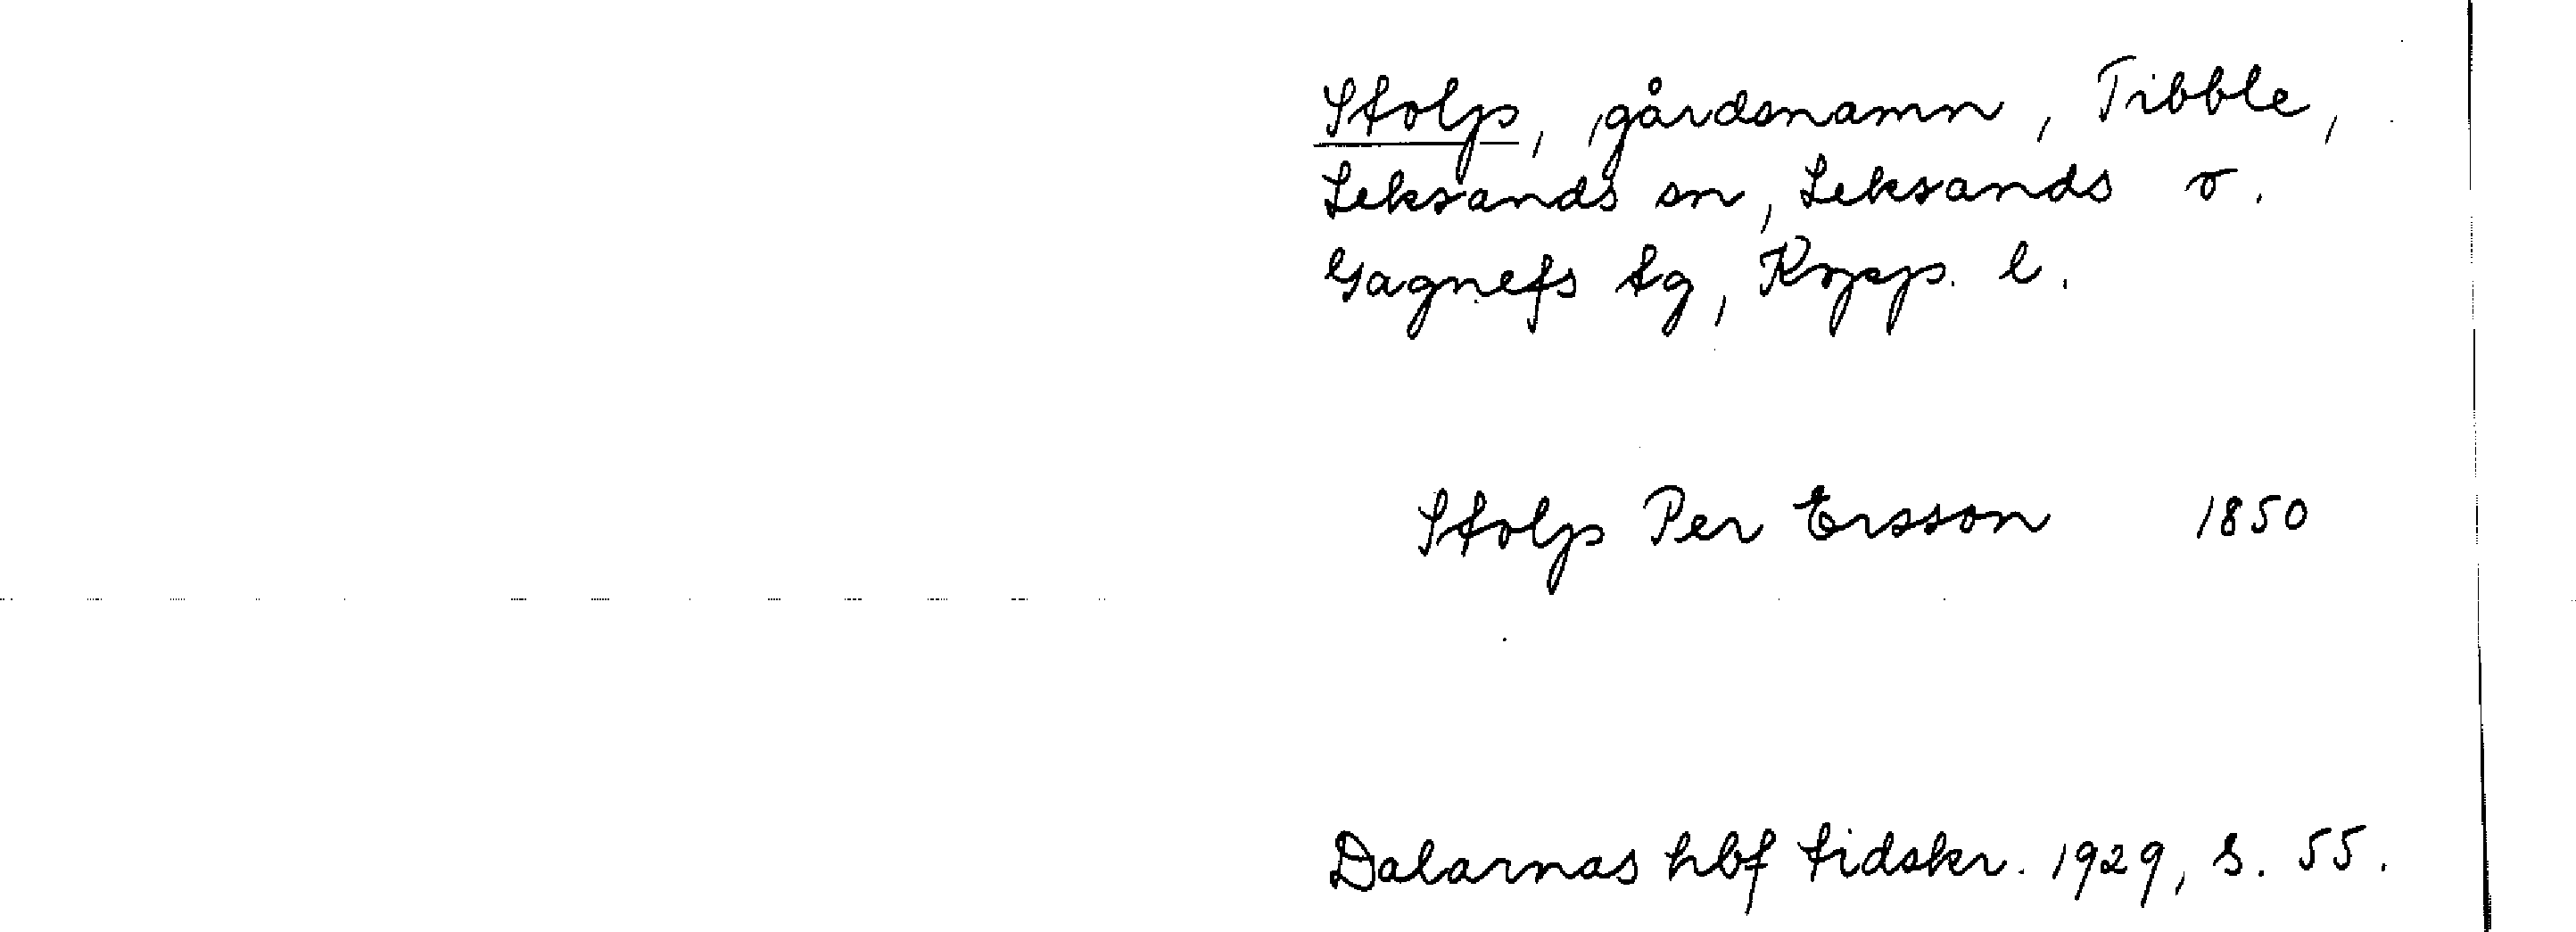 Stolp, gårdsnamn, Tibble,
Leksands sn, Leksands o.
Gagnefs tg, Kopp. l.
Stolp Per Ersson 1850
Dalarnas hbf tidskr. 1929, s. 55.